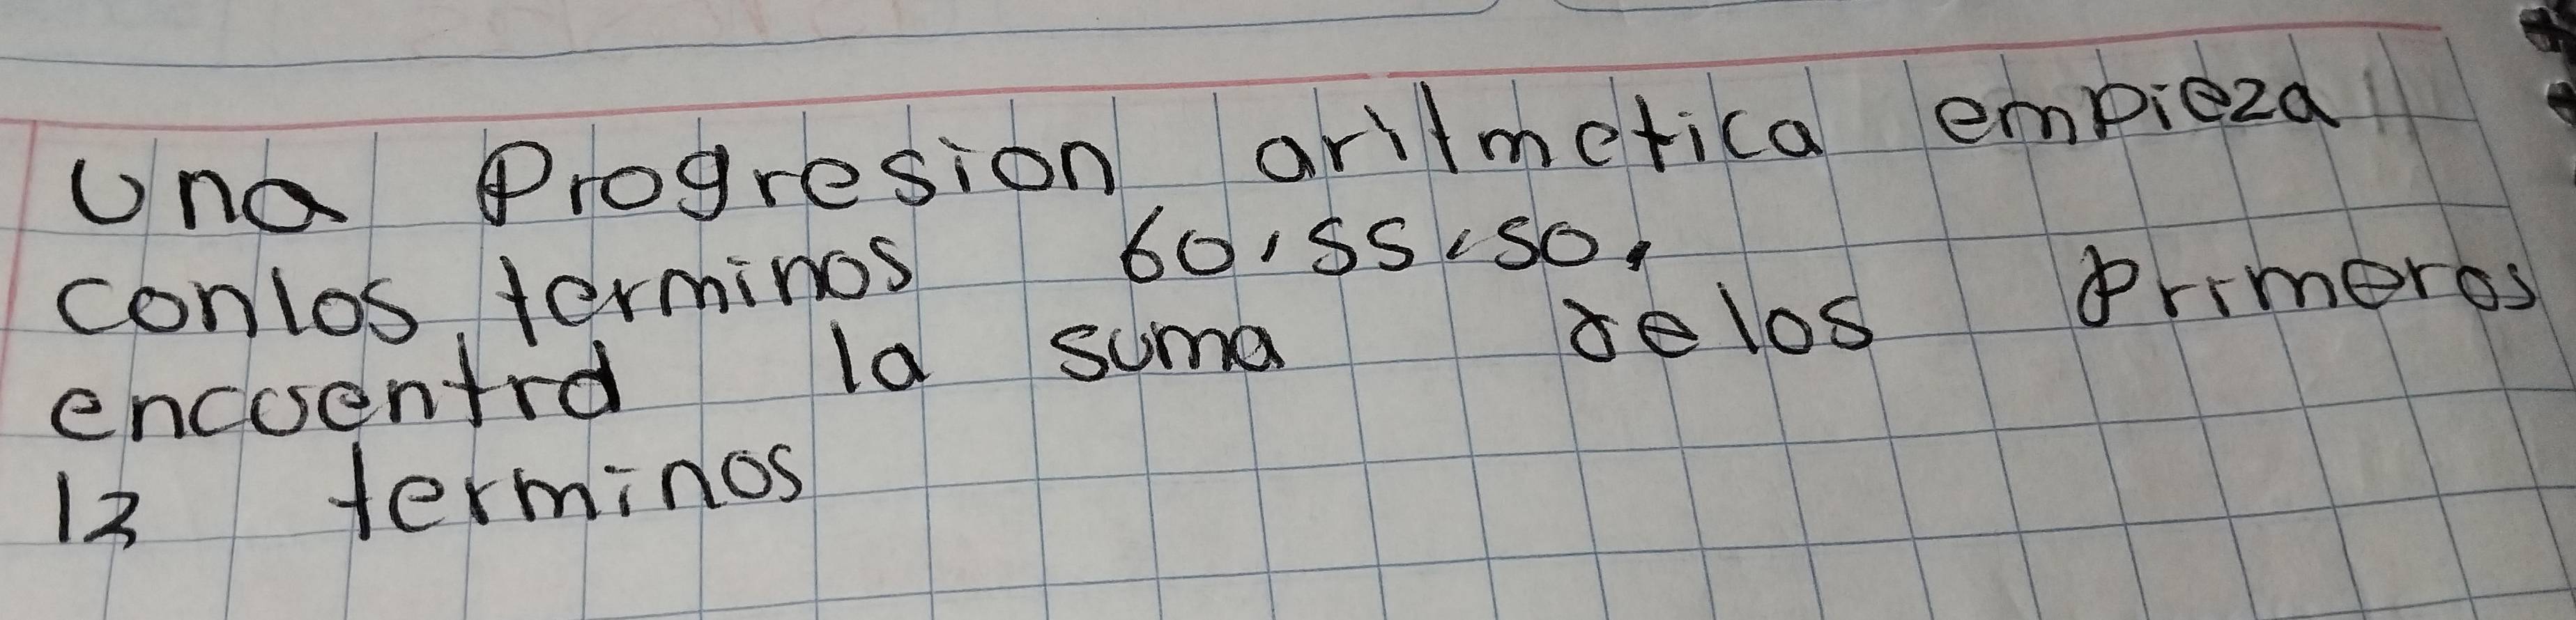 Una Progresion aritmetica empieza
conlos terminos 60, 55, 50,
encuentra la suma de los primeros
12 terminos